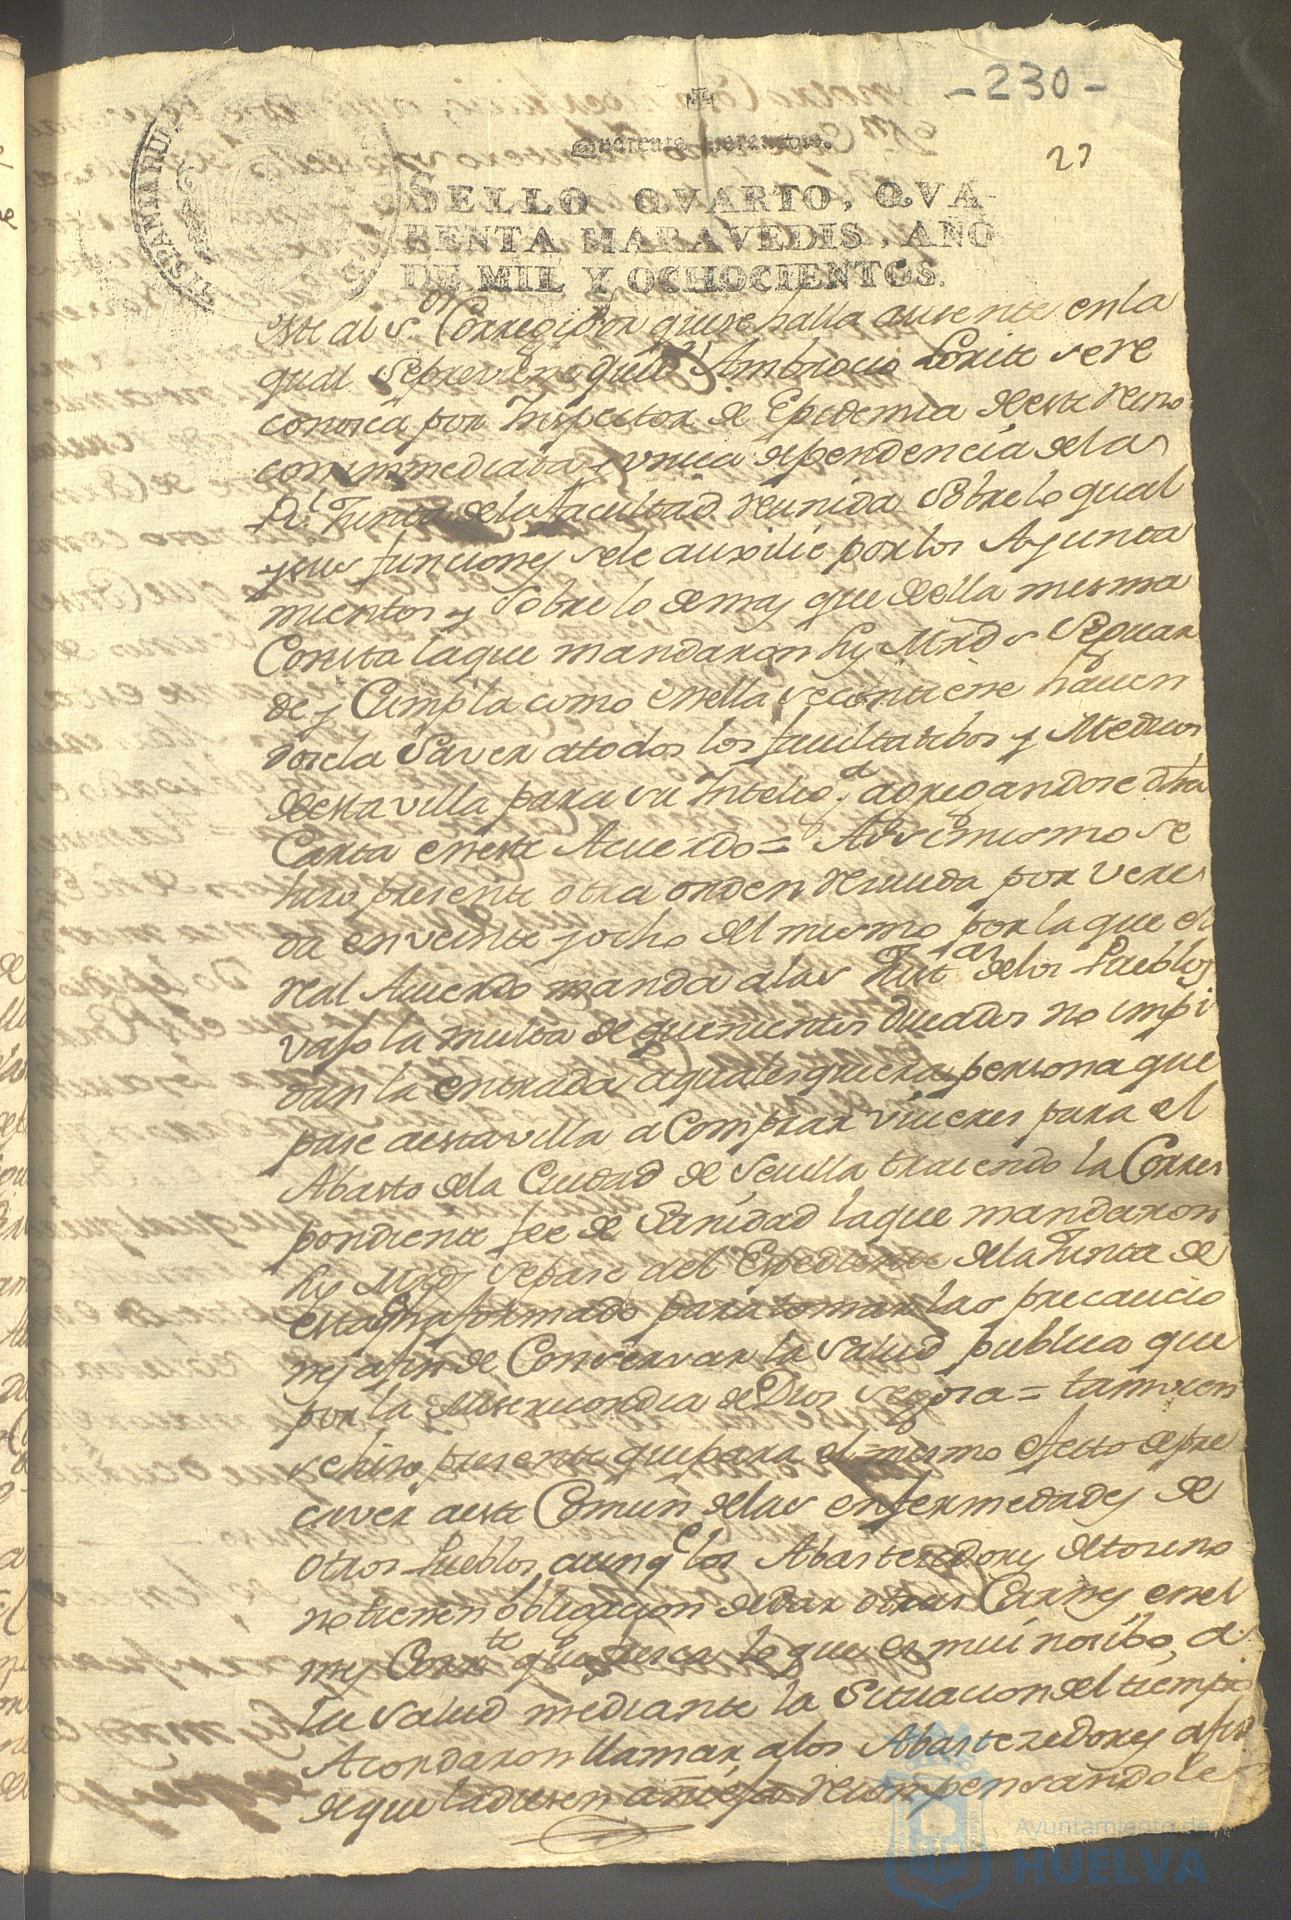 -230-
27
Quarenta maravedis.
SELLO QVARTO, QVA-
RENTA MARAVEDIS, AÑO
DE MIL Y OCHOCIENTOS.
HISPANIARUM
este al Sor. Corregidor que se halla ausente en la
qual se previene que Dn Ambrocio Lorite se re
conosca por Inspector de Epidemia de este Reino
con immediata y unica dependencia de la
Rl. Junta de la facultad reunida sobre lo qual
y sus funciones se le auxilie por los Ayunta
mientos y sobre lo demas que de ella mesma
Consta la que mandaron sus Mrds se guar
de y Cumpla como en ella se contiene hacien
dosela saver a todos los facultatibos y Medicos
de esta villa para su Intelig.a agregandose dha
Carta en este Acuerdo = Assimismo se
hiso presente otra orden reciuida por vere
da en veinte y ocho del mismo por la que el
Real Acuerdo manda a las Justas. de los Pueblos
vajo la multa de quinientos Ducados no impi
dan la entrada a qualesquiera persona que
pase a esta villa a Comprar viveres para el
Abasto de la Ciudad de Sevilla trayendo la Corres
pondiente fee de Sanidad la que mandaron
sus Mrds se pase al Expediente de la Junta de
esta informado para tomar las precaucio
nes a fin de Conservar la salud publica que
por la Misericordia de Dios se goza = tamvien
se hiso presente que para el mismo efecto de pre
caver a este Comun de las enfermedades de
otros Pueblos, aunqe los Abastecedores de toreno
no tienen obligacion de dar otras Carnes en el
mes Corrte que fresca lo que es mui nosibo a
la salud mediante la situacion del tiempo
Acordaron llamar a los Abastecedores a fin
de que la diesen añeja recompensandoles
Ayuntamiento de
HUELVA